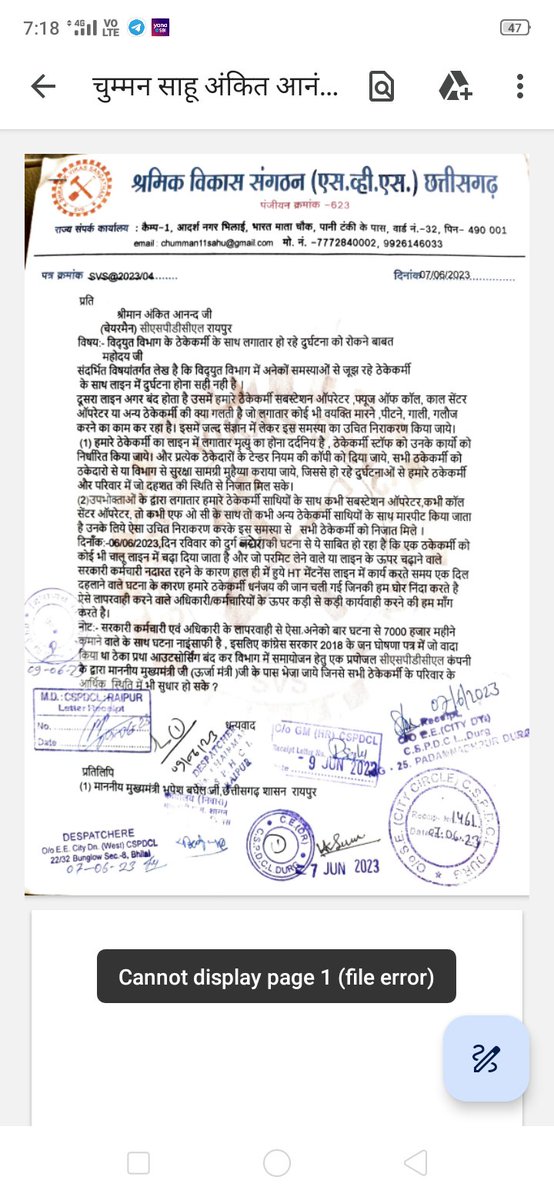 7:18
4G
VO
LTE
yono
SBI
47
चुम्मन साहू अंकित आनं...
श्रमिक विकास संगठन (एस.व्ही.एस.) छत्तीसगढ़
पंजीयन क्रमांक -623
राज्य संपर्क कार्यालय : कैम्प-1, आदर्श नगर भिलाई, भारत माता चौक, पानी टंकी के पास, वार्ड नं.-32, पिन- 490 001
email : chumman11sahu@gmail.com मो. नं. -7772840002, 9926146033
पत्र क्रमांक SVS@2023/04........
दिनांक07/06/2023.......
प्रति
श्रीमान अंकित आनन्द जी
(चेयरमैन) सीएसपीडीसीएल रायपुर
विषय:- विद्युत विभाग के ठेकेकर्मी के साथ लगातार हो रहे दुर्घटना को रोकने बाबत
महोदय जी
संदर्भित विषयांतर्गत लेख है कि विद्युत विभाग में अनेकों समस्याओ से जूझ रहे ठेकेकर्मी
के साथ लाइन में दुर्घटना होना सही नही है ।
दूसरा लाइन अगर बंद होता है उसमें हमारे ठेकेकर्मी सबस्टेशन ऑपरेटर ,फ्यूज ऑफ कॉल, काल सेंटर
ऑपरेटर या अन्य ठेकेकर्मी की क्या गलती है जो लगातार कोई भी वयक्ति मारने ,पीटने, गाली, गलौज
करने का काम कर रहा है। इसमें जल्द संज्ञान में लेकर इस समस्या का उचित निराकरण किया जाये।
(1) हमारे ठेकेकर्मी का लाइन में लगातार मृत्यु का होना दर्दनिय है , ठेकेकर्मी स्टॉफ को उनके कार्यो को
निर्धारित किया जाये। और प्रत्येक ठेकेदारों के टेन्डर नियम की कॉपी को दिया जाये, सभी ठेकेकर्मी को
ठेकेदारो से या विभाग से सुरक्षा सामग्री मुहैय्या कराया जाये, जिससे हो रहे दुर्घटनाओ से हमारे ठेकेकर्मी
और परिवार में जो दहशत की स्थिति से निजात मिल सके।
(2)उपभोक्ताओ के द्वारा लगातार हमारे ठेकेकर्मी साथियों के साथ कभी सबस्टेशन ऑपरेटर,कभी कॉल
सेंटर ऑपरेटर, तो कभी एफ ओ सी के साथ तो कभी अन्य ठेकेकर्मी साथियों के साथ मारपीट किया जाता
है उनके लिये ऐसा उचित निराकरण करके इस समस्या से सभी ठेकेकर्मी को निजात मिले ।
दिनाँक:-06/06/2023,दिन रविवार को दुर्ग की घटना से ये साबित हो रहा है कि एक ठेकेकर्मी को
कोई भी चालू लाइन में चढ़ा दिया जाता है और जो परमिट लेने वाले या लाइन के ऊपर चढ़ाने वाले
सरकारी कर्मचारी नदारत रहने के कारण हाल ही में हुये HT मेंटनेंस लाइन में कार्य करते समय एक दिल
दहलाने वाले घटना के कारण हमारे ठेकेकर्मी धनंजय की जान चली गई जिनकी हम घोर निंदा करते है
ऐसे लापरवाही करने वाले अधिकारी/कर्मचारियों के ऊपर कड़ी से कड़ी कार्यवाही करने की हम माँग
करते है।
नोट:- सरकारी कर्मचारी एवं अधिकारी के लापरवाही से ऐसा अनेको बार घटना से 7000 हजार महीने
कुमाने वाले के साथ घटना नाइंसाफी है , इसलिए कांग्रेस सरकार 2018 के जन घोषणा पत्र में जो वादा
किया था ठेका प्रथा आउटसोर्सिंग बंद कर विभाग में समायोजन हेतु एक प्रपोजल सीएसपीडीसीएल कंपनी
के द्वारा माननीय मुख्यमंत्री जी (ऊर्जा मंत्री )जी के पास भेजा जाये जिनसे सभी ठेकेकर्मी के परिवार के
आर्थिक स्थिति में भी सुधार हो सके ?
M.D.: CSPDCL:RAIPUR
Letter Receipt
No.
Date
धन्यवाद
09/06/23
C/o GM (HR) CSPDCL
Receipt Letter No.
- 9 JUN 2023
07/6/2023
Receipt
O/O E.E.(CITY DN)
C.S.P.D.C.L. Durg
प्रतिलिपि
(1) माननीय मुख्यमंत्री भूपेश बघेल जी,छत्तीसगढ़ शासन रायपुर
DESPATCHERE
O/o E.E. City Dn. (West) CSPDCL
22/32 Bunglow Sec.-8, Bhilai
07-06-23
7 JUN 2023
1461
07.06.23
Cannot display page 1 (file error)